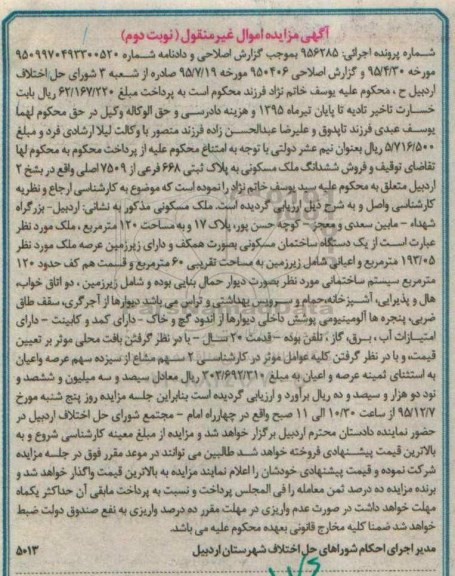 آگهی مزایده اموال غیر منقول (نوبت دوم)
شماره پرونده اجرائی: ۹۵۶۲۸۵ بموجب گزارش اصلاحی و دادنامه شماره ۹۵۰۹۹۷۰۴۹۳۳۰۰۵۲۰
مورخه ۹۵/۴/۳۰ و گزارش اصلاحی ۹۵۰۴۰۶ مورخه ۹۵/۷/۱۹ صادره از شعبه ۳ شورای حل اختلاف
اردبیل ح ، محکوم علیه یوسف خاتم نژاد فرزند محکوم است به پرداخت مبلغ ۶۲/۱۶۷/۲۲۰ ریال بابت
خسارت تاخیر تادیه تا پایان تیرماه ۱۳۹۵ و هزینه دادرسی و حق الوکاله وکیل در حق محکوم لهما
یوسف عبدی فرزند تاپدوق و علیرضا عبدالحسن زاده فرزند منصور با وکالت لیلا ارشادی فرد و مبلغ
۵/۷۱۶/۵۰۰ ریال بعنوان نیم عشر دولتی با توجه به امتناع محکوم علیه از پرداخت محکوم به محکوم لها
تقاضای توقیف و فروش ششدانگ ملک مسکونی به پلاک ثبتی ۶۶۸ فرعی از ۷۵۰۹ اصلی واقع در بخش ۲
اردبیل متعلق به محکوم علیه سید یوسف خاتم نژاد را نموده است که موضوع به کارشناسی ارجاع و نظریه
کارشناسی واصل و به شرح ذیل ارزیابی گردیده است. ملک مسکونی مذکور به نشانی: اردبیل- بزرگراه
شهداء - مابین سعدی و کوچه حسن پور، پلاک ۱۷ و به مساحت ۱۲۰ مترمربع ، ملک مورد نظر
عبارت است از یک دستگاه ساختمان مسکونی بصورت همکف و دارای زیرزمین عرصه ملک مورد نظر
۱۹۳/۰۵ مترمربع و اعیانی شامل زیرزمین به مساحت تقریبی ۶۰ مترمربع و قسمت هم کف حدود ۱۲۰
مترمربع سیستم ساختمانی مورد نظر بصورت دیوار حمال بنایی بوده و شامل زیرزمین ، دو اتاق خواب،
هال و پذیرایی، آشپزخانه،حمام و سرویس بهداشتی و تراس می باشد دیوارها از آجر گری، سقف طاق
ضربی، پنجره ها آلومینیومی پوشش داخلی دیوارها از اندود گچ و خاک - دارای کمد و کابینت - دارای
امتیازات آب ، برق، گاز ، تلفن بوده - قدمت ۲۰ سال - با در نظر گرفتن بافت محلی موثر بر تعیین
قیمت، و با در نظر گرفتن کلیه عوامل موثر در کارشناسی ۲ سهم مشاع از سیزده سهم عرصه واعیان
به استثنای ثمینه عرصه و اعیان به مبلغ ۳۰۳/۶۹۲/۳۱۰ ریال معادل سیصد و سه میلیون و ششصد و
نود دو هزار و سیصد و ده ریال برآورد و ارزیابی گردیده است بنابراین جلسه مزایده روز پنج شنبه مورخ
۹۵/۱۲/۷ از ساعت ۱۰/۳۰ الی ۱۱ صبح واقع در چهارراه امام - مجتمع شورای حل اختلاف اردبیل در
حضور نماینده دادستان محترم اردبیل برگزار خواهد شد و مزایده از مبلغ معینه کارشناسی شروع و به
بالاترین قیمت پیشنهادی فروخته خواهد شد طالبین می توانند در موعد مقرر فوق در جلسه مزایده
شرکت نموده و قیمت پیشنهادی خودشان را اعلام نمایند مزایده به بالاترین قیمت واگذار خواهد شد و
برنده مزایده ده درصد ثمن معامله را فی المجلس پرداخت و نسبت به پرداخت مابقی آن حداکثر یکماه
مهلت خواهد داشت در صورت عدم واریزی در مهلت مقرر ده درصد واریزی به نفع صندوق دولت ضبط
خواهد شد ضمنا کلیه مخارج قانونی بعهده محکوم علیه می باشد.
مدیر اجرای احکام شوراهای حل اختلاف شهرستان اردبیل ۵۰۱۳